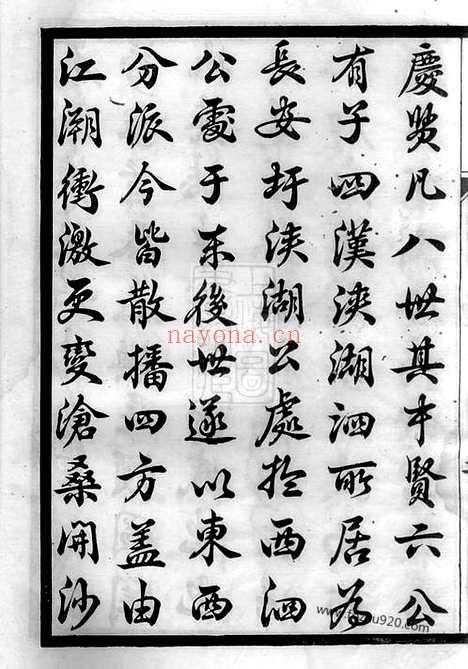 慶贤凡八世其中賢六公
有子四漢浹湖泗所居为
長安圩浹湖公處於西泗
公處于东後世遂以東西
分派今皆散播四方蓋由
江潮衝激更變滄桑開沙
nayona.cn